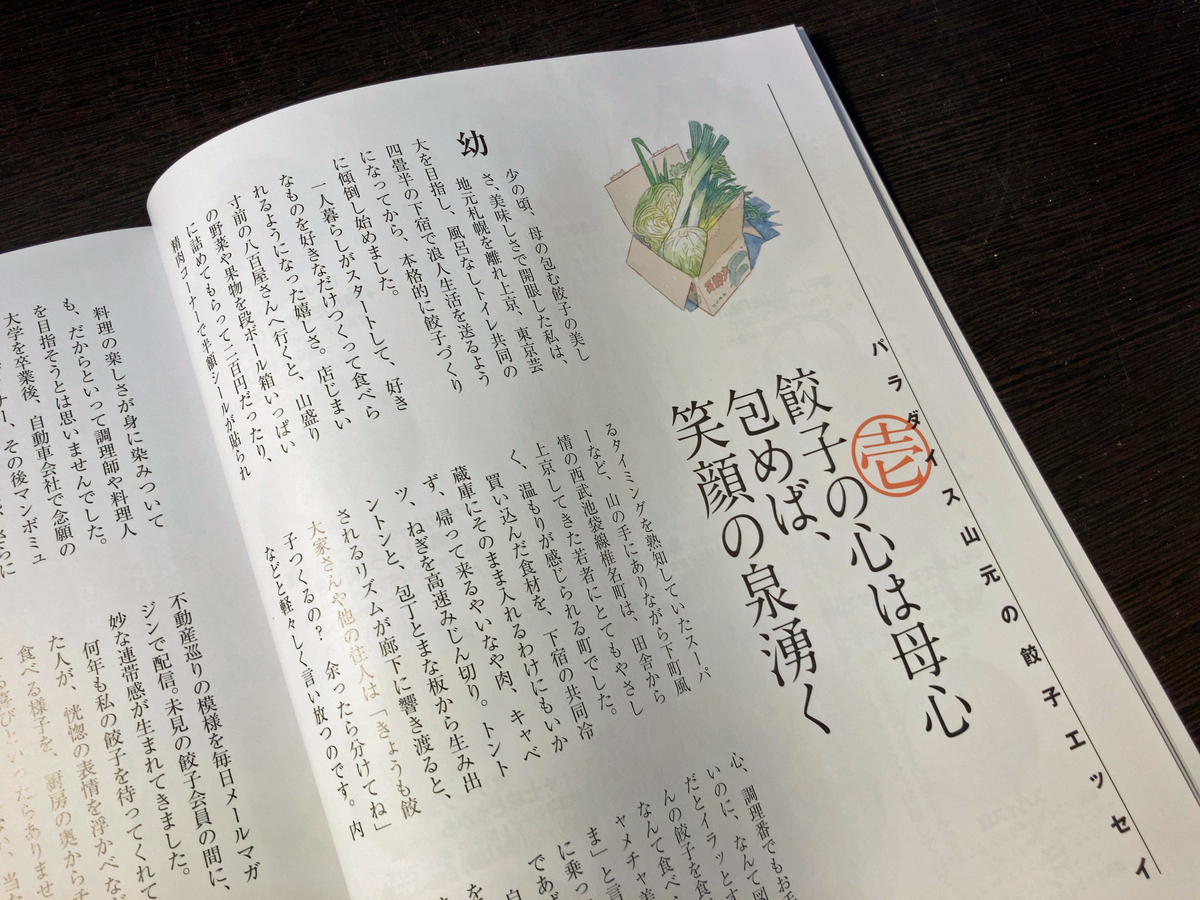 パラダイス山元の餃子エッセイ
壱
餃子の心は母心
包めば、
笑顔の泉湧く
幼少の頃、母の包む餃子の美し
さ、美味しさで開眼した私は、
地元札幌を離れ上京、東京芸
大を目指し、風呂なしトイレ共同の
四畳半の下宿で浪人生活を送るよう
になってから、本格的に餃子づくり
に傾倒し始めました。
一人暮らしがスタートして、好き
なものを好きなだけつくって食べら
れるようになった嬉しさ。店じまい
寸前の八百屋さんへ行くと、山盛り
の野菜や果物を段ボール箱いっぱい
に詰めてもらって二百円だったり、
精肉コーナーで半額シールが貼られ
るタイミングを熟知していたスーパ
ーなど、山の手にありながら下町風
情の西武池袋線椎名町は、田舎から
上京してきた若者にとてもやさし
く、温もりが感じられる町でした。
買い込んだ食材を、下宿の共同冷
蔵庫にそのまま入れるわけにもいか
ず、帰って来るやいなや肉、キャベ
ツ、ねぎを高速みじん切り。トント
ントンと、包丁とまな板から生み出
されるリズムが廊下に響き渡ると、
大家さんや他の住人は「きょうも餃
子つくるの？　余ったら分けてね」
などと軽々しく言い放つのです。内
心、調理番でもお
いのに、なんて図
だとイラッとす
んの餃子を食
なんて食べ、
ヤメチャ美
ま」と言
に乗っ
であ
料理の楽しさが身に染みついて
も、だからといって調理師や料理人
を目指そうとは思いませんでした。
大学を卒業後、自動車会社で念願の
その後マンボミュ
さらに
不動産巡りの模様を毎日メールマガ
ジンで配信。未見の餃子会員の間に、
妙な連帯感が生まれてきました。
何年も私の餃子を待ってくれて
た人が、恍惚の表情を浮かべな
食べる様子を、厨房の奥から